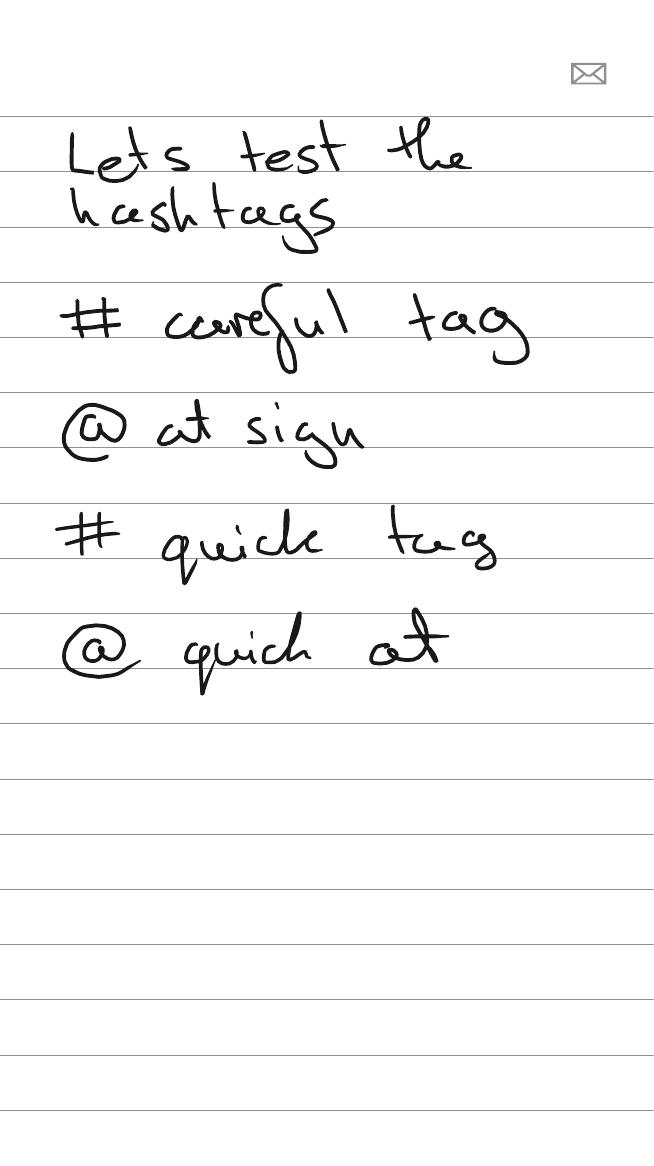 Lets test the
hashtags
# careful tag
@ at sign
# quick tag
@ quick at